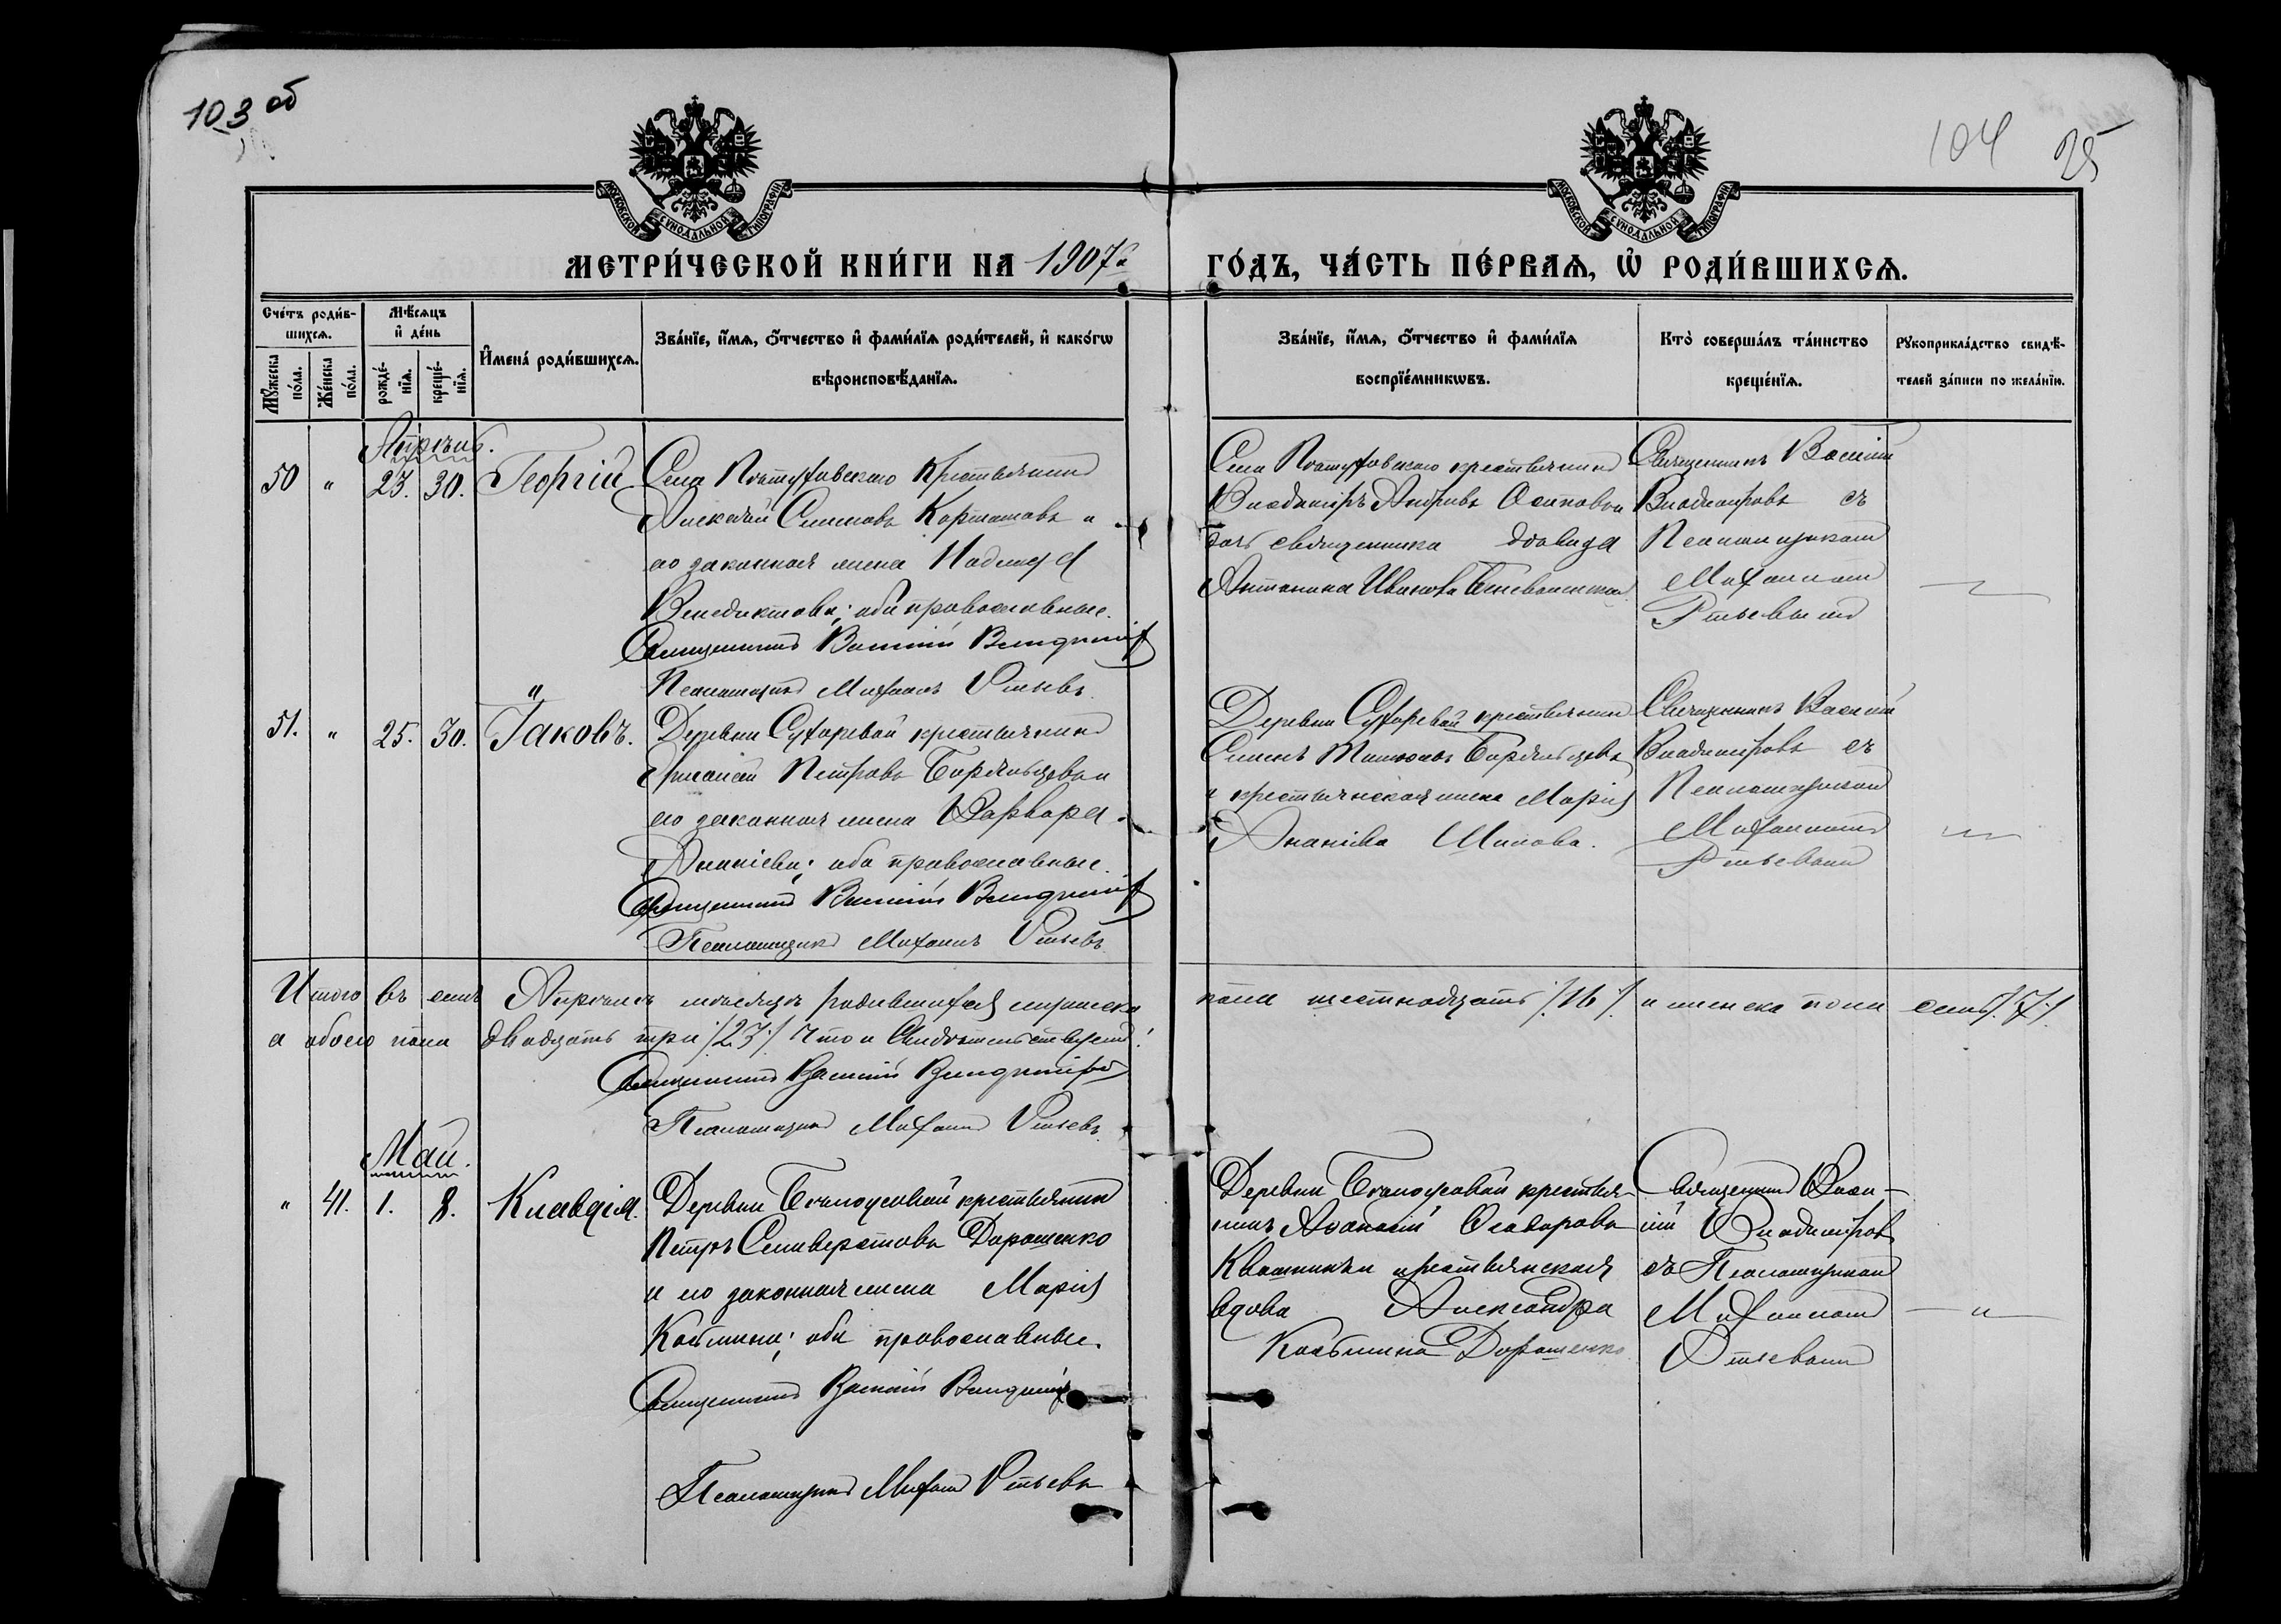 103 об
104 25
МОСКОВСКОЙ СѴНОДАЛЬНОЙ ТИПОГРАФІИ
МОСКОВСКОЙ СѴНОДАЛЬНОЙ ТИПОГРАФІИ
МЕТРИ́ЧЕСКОЙ КНИ́ГИ НА 1907й ГО́ДЪ, ЧА́СТЬ ПЕ́РВАѦ, Ѡ РОДИ́ВШИХСѦ.
Сче́тъ роди́в-
шихсѧ.
Мꙋ́жеска по́ла.
Же́нска по́ла.
Мѣ́сѧцъ
и҆ де́нь
рожде́-
нїѧ.
креще́-
нїѧ.
И҆мена̀ роди́вшихсѧ.
Зва́нїе, и҆́мѧ, ѻ҆́тчество и҆ фами́лїѧ роди́телей, и҆ како́гѡ
вѣроисповѣ́данїѧ.
Зва́нїе, и҆́мѧ, ѻ҆́тчество и҆ фами́лїѧ
воспрїе́мникѡвъ.
Кто̀ соверша́лъ та́инство
креще́нїѧ.
Рꙋкоприкла́дство свидѣ́-
телей за́писи по жела́нїю.
Апрѣль.
50 " 23. 30. Георгій
Села крестьянинъ
Алексѣй Симеоновъ и
его законная жена Надежда
Венедиктова; оба православные.
Священникъ Василій Владиміровъ
Псаломщикъ Михаилъ
Села крестьянинъ
Владиміръ и
дочь священника дѣвица
Антонина Иванова
Священникъ Василій
Владиміровъ съ
Псаломщикомъ
Михаиломъ
51. " 25. 30. Іаковъ.
Деревни Сухаревой крестьянинъ
Петровъ и
его законная жена Варвара
Ананіева; оба православные.
Священникъ Василій Владиміровъ
Псаломщикъ Михаилъ
Деревни Сухаревой крестьянинъ
и крестьянская жена Марія
Ананіева Шилова.
Священникъ Василій
Владиміровъ съ
Псаломщикомъ
Михаиломъ
Итого въ семъ Апрѣлѣ мѣсяцѣ родившихся мужеска пола шестнадцать /16/ и женска пола семь /7/.
а обоего пола двадцать три /23/ что и свидѣтельствуемъ:
Священникъ Василій Владиміровъ
Псаломщикъ Михаилъ
Май.
" 41. 1. 8. Клавдія.
Деревни крестьянинъ
Петръ Селиверстовъ Дорошенко
и его законная жена Марія
Косьмина; оба православные.
Священникъ Василій Владиміровъ
Псаломщикъ Михаилъ
Деревни крестья-
нинъ Аѳанасій Ѳеодоровъ
Квашнинъ и крестьянская
вдова Александра
Косьмина Дорошенко
Священникъ Васи-
лій Владиміровъ
съ Псаломщикомъ
Михаиломъ